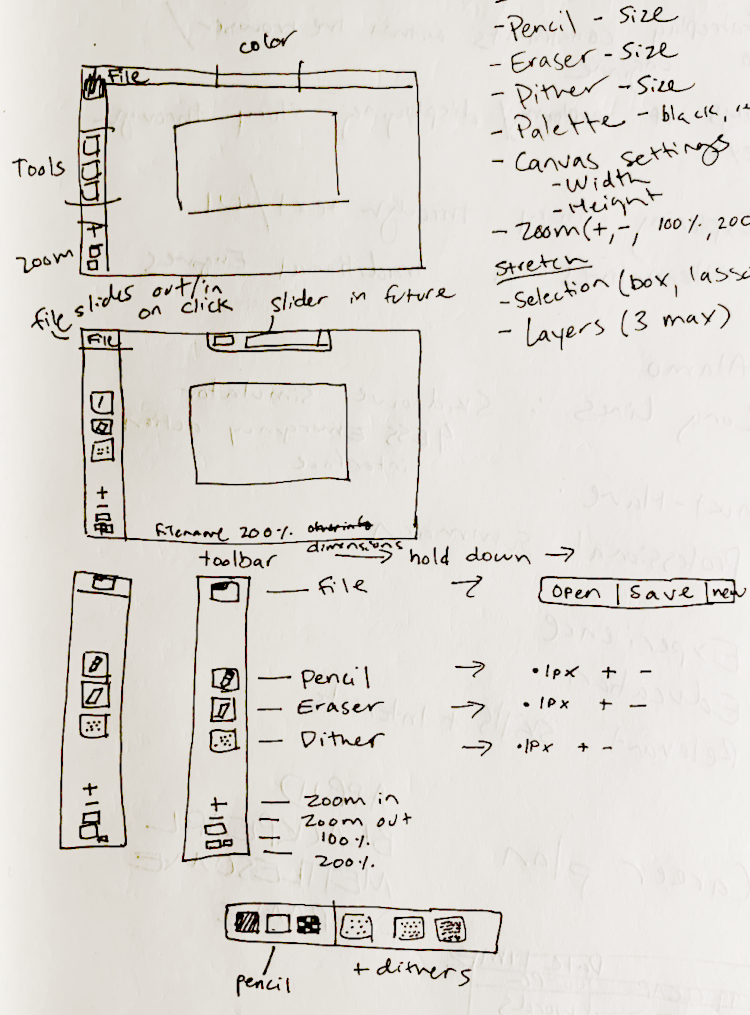 - Pencil - Size
- Eraser - Size
- Dither - Size
- Palette - black,
- Canvas settings
- Width
- Height
- Zoom (+, -, 100%, 200
Stretch
- Selection (box, lasso
- Layers (3 max)
color
File
Tools
+
zoom
file slides out/in
on click
slider in future
File
+
-
Filename 200%
dimensions
toolbar
hold down →
File → Open | Save | new
Pencil → • 1px + -
Eraser → • 1px + -
Dither → • 1px + -
+ — Zoom in
- — Zoom out
— 100%
— 200%
pencil
+ dithers